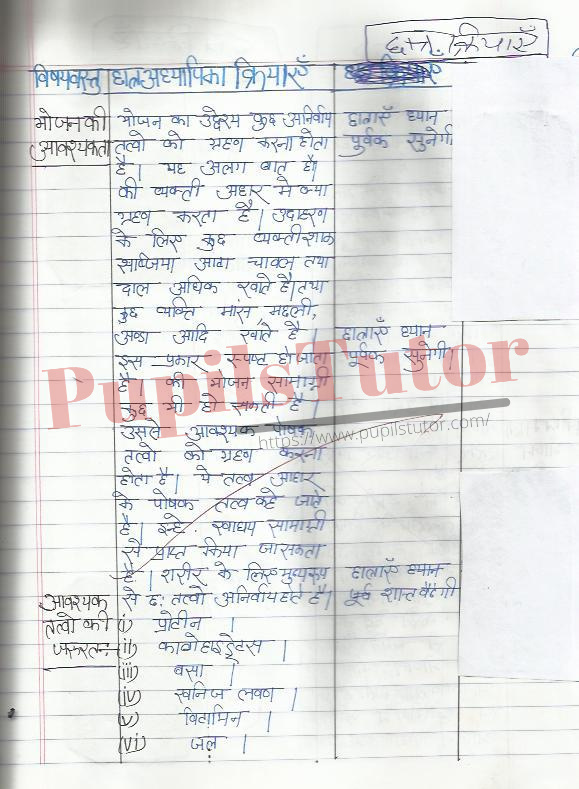 छात्र क्रियाएँ
विषयवस्तु छात्र-अध्यापिका क्रियाएँ
भोजन की भोजन का उद्देश्य कुछ अनिवार्य छात्राएँ ध्यान
आवश्यकता तत्वो को ग्रहण करना होता पूर्वक सुनेगी
है। यह अलग बात है।
की व्यक्ती अहार मे क्या
ग्रहण करता है। उदाहरण
के लिए कुछ व्यक्ती शाक
सब्जिया आटा चावल तथा
दाल अधिक खाते है। तथा
कुछ व्यक्ति मांस, मछली,
अण्डा आदि खाते है। छात्राएँ ध्यान
इस प्रकार स्पष्ट हो जाता पूर्वक सुनेगी।
है की भोजन सामाग्री
PupilsTutor
कुछ भी हो सकती है।
उसले आवश्यक पोषक
https://www.pupilstutor.com/
तत्वो को ग्रहण करना
होता है। ये तत्व आहार
के पोषक तत्व कहे जाते
है। इन्हे स्वाधय सामाग्री
से प्राप्त किया जा सकता
है। शरीर के लिए मुख्यरूप छात्राएँ ध्यान
आवश्यक से छः तत्वो अनिर्वाय होते है। पूर्व शान्त बैठेगी
तत्वो की (i) प्रोटीन।
जरूरत:- (ii) काबोहाइड्रेटस।
(iii) वसा।
(iv) खनिज लवण।
(v) विटामिन।
(vi) जल।